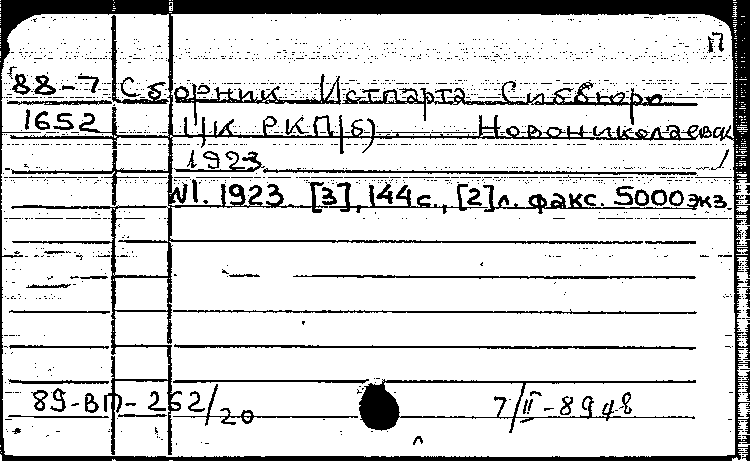 П
88-7 Сборник Истпарта Сиббюро
1652 ЦК РКП(б) Новониколаевск,
1923
№1. 1923. [3], 144 с., [2] л. факс. 5000 экз.
89-ВП-262/20 7/II-8948